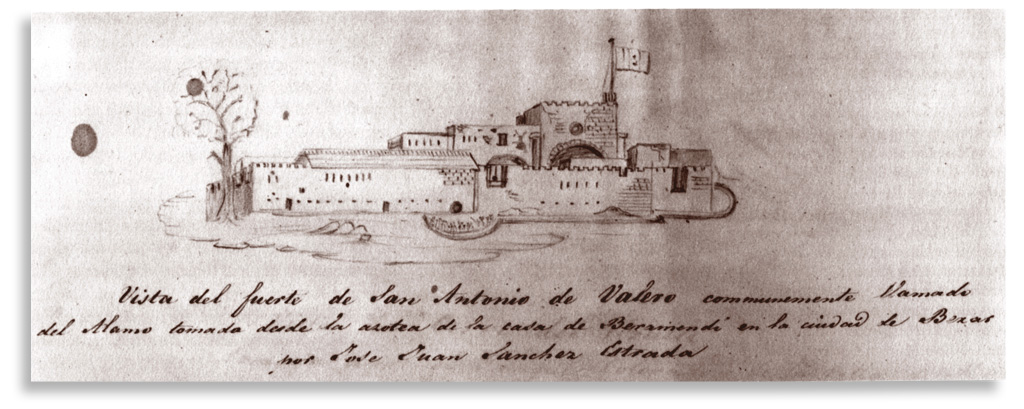 Vista del fuerte de San Antonio de Valero communemente llamado
del Alamo tomada desde la azotea de la casa de Beramendi en la ciudad de Bexar
por Jose Juan Sanchez Estrada